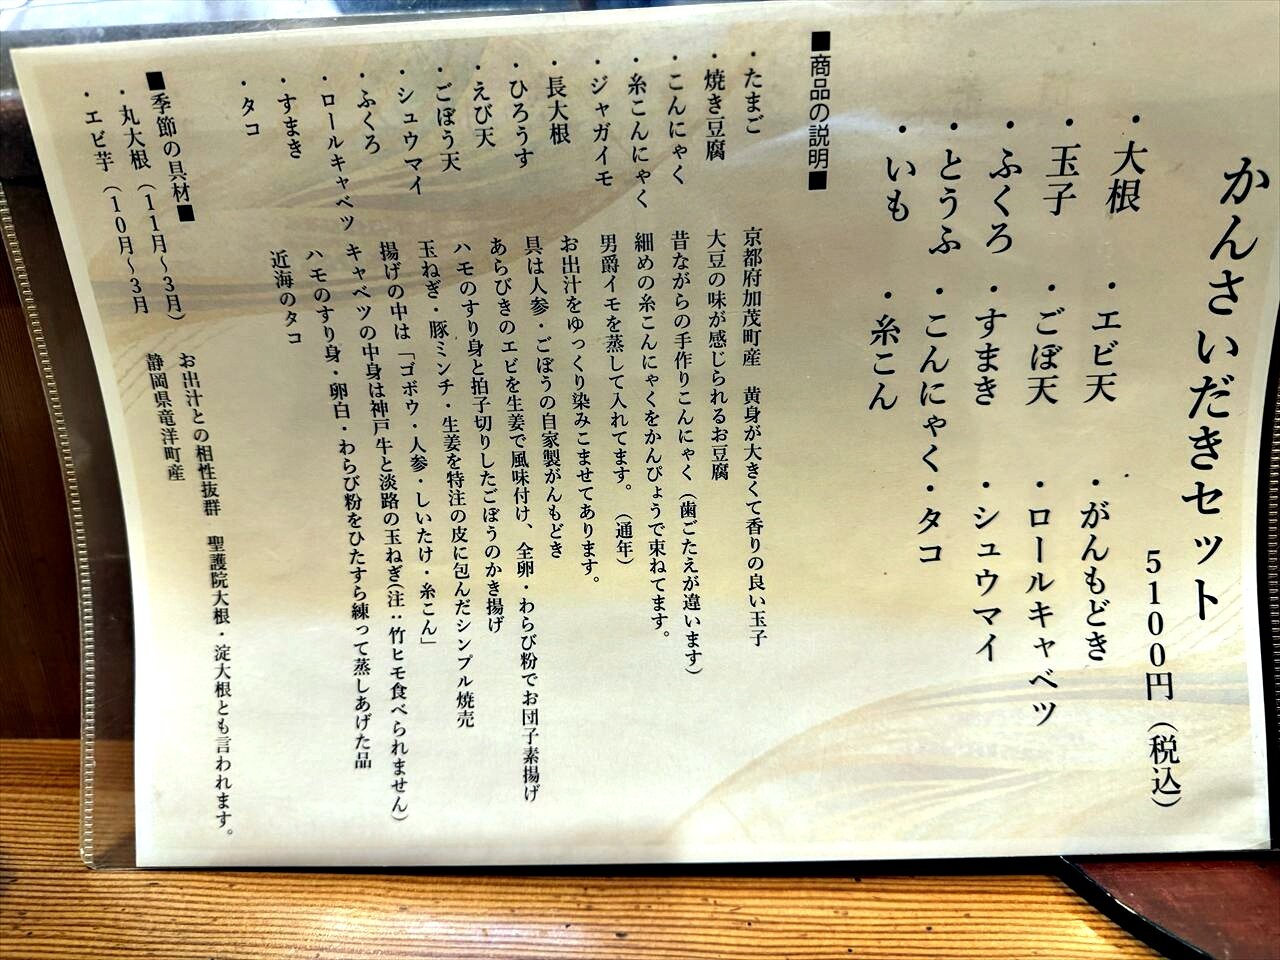 かんさいだきセット
5100円（税込）
・大根　・エビ天　・がんもどき
・玉子　・ごぼ天　・ロールキャベツ
・ふくろ　・すまき　・シュウマイ
・とうふ　・こんにゃく・タコ
・いも　・糸こん
■商品の説明■
・たまご　京都府加茂町産　黄身が大きくて香りの良い玉子
・焼き豆腐　大豆の味が感じられるお豆腐
・こんにゃく　昔ながらの手作りこんにゃく（歯ごたえが違います）
・糸こんにゃく　細めの糸こんにゃくをかんぴょうで束ねてます。
・ジャガイモ　男爵イモを蒸して入れてます。（通年）
・長大根　お出汁をゆっくり染みこませてあります。
・ひろうす　具は人参・ごぼうの自家製がんもどき
・えび天　あらびきのエビを生姜で風味付け、全卵・わらび粉でお団子素揚げ
・ごぼう天　ハモのすり身と拍子切りしたごぼうのかき揚げ
・シュウマイ　玉ねぎ・豚ミンチ・生姜を特注の皮に包んだシンプル焼売
・ふくろ　揚げの中は「ゴボウ・人参・しいたけ・糸こん」
・ロールキャベツ　キャベツの中身は神戸牛と淡路の玉ねぎ(注：竹ヒモ食べられません）
・すまき　ハモのすり身・卵白・わらび粉をひたすら練って蒸しあげた品
・タコ　近海のタコ
■季節の具材■
・丸大根（１１月～３月）　お出汁との相性抜群　聖護院大根・淀大根とも言われます。
・エビ芋（１０月～３月　静岡県竜洋町産